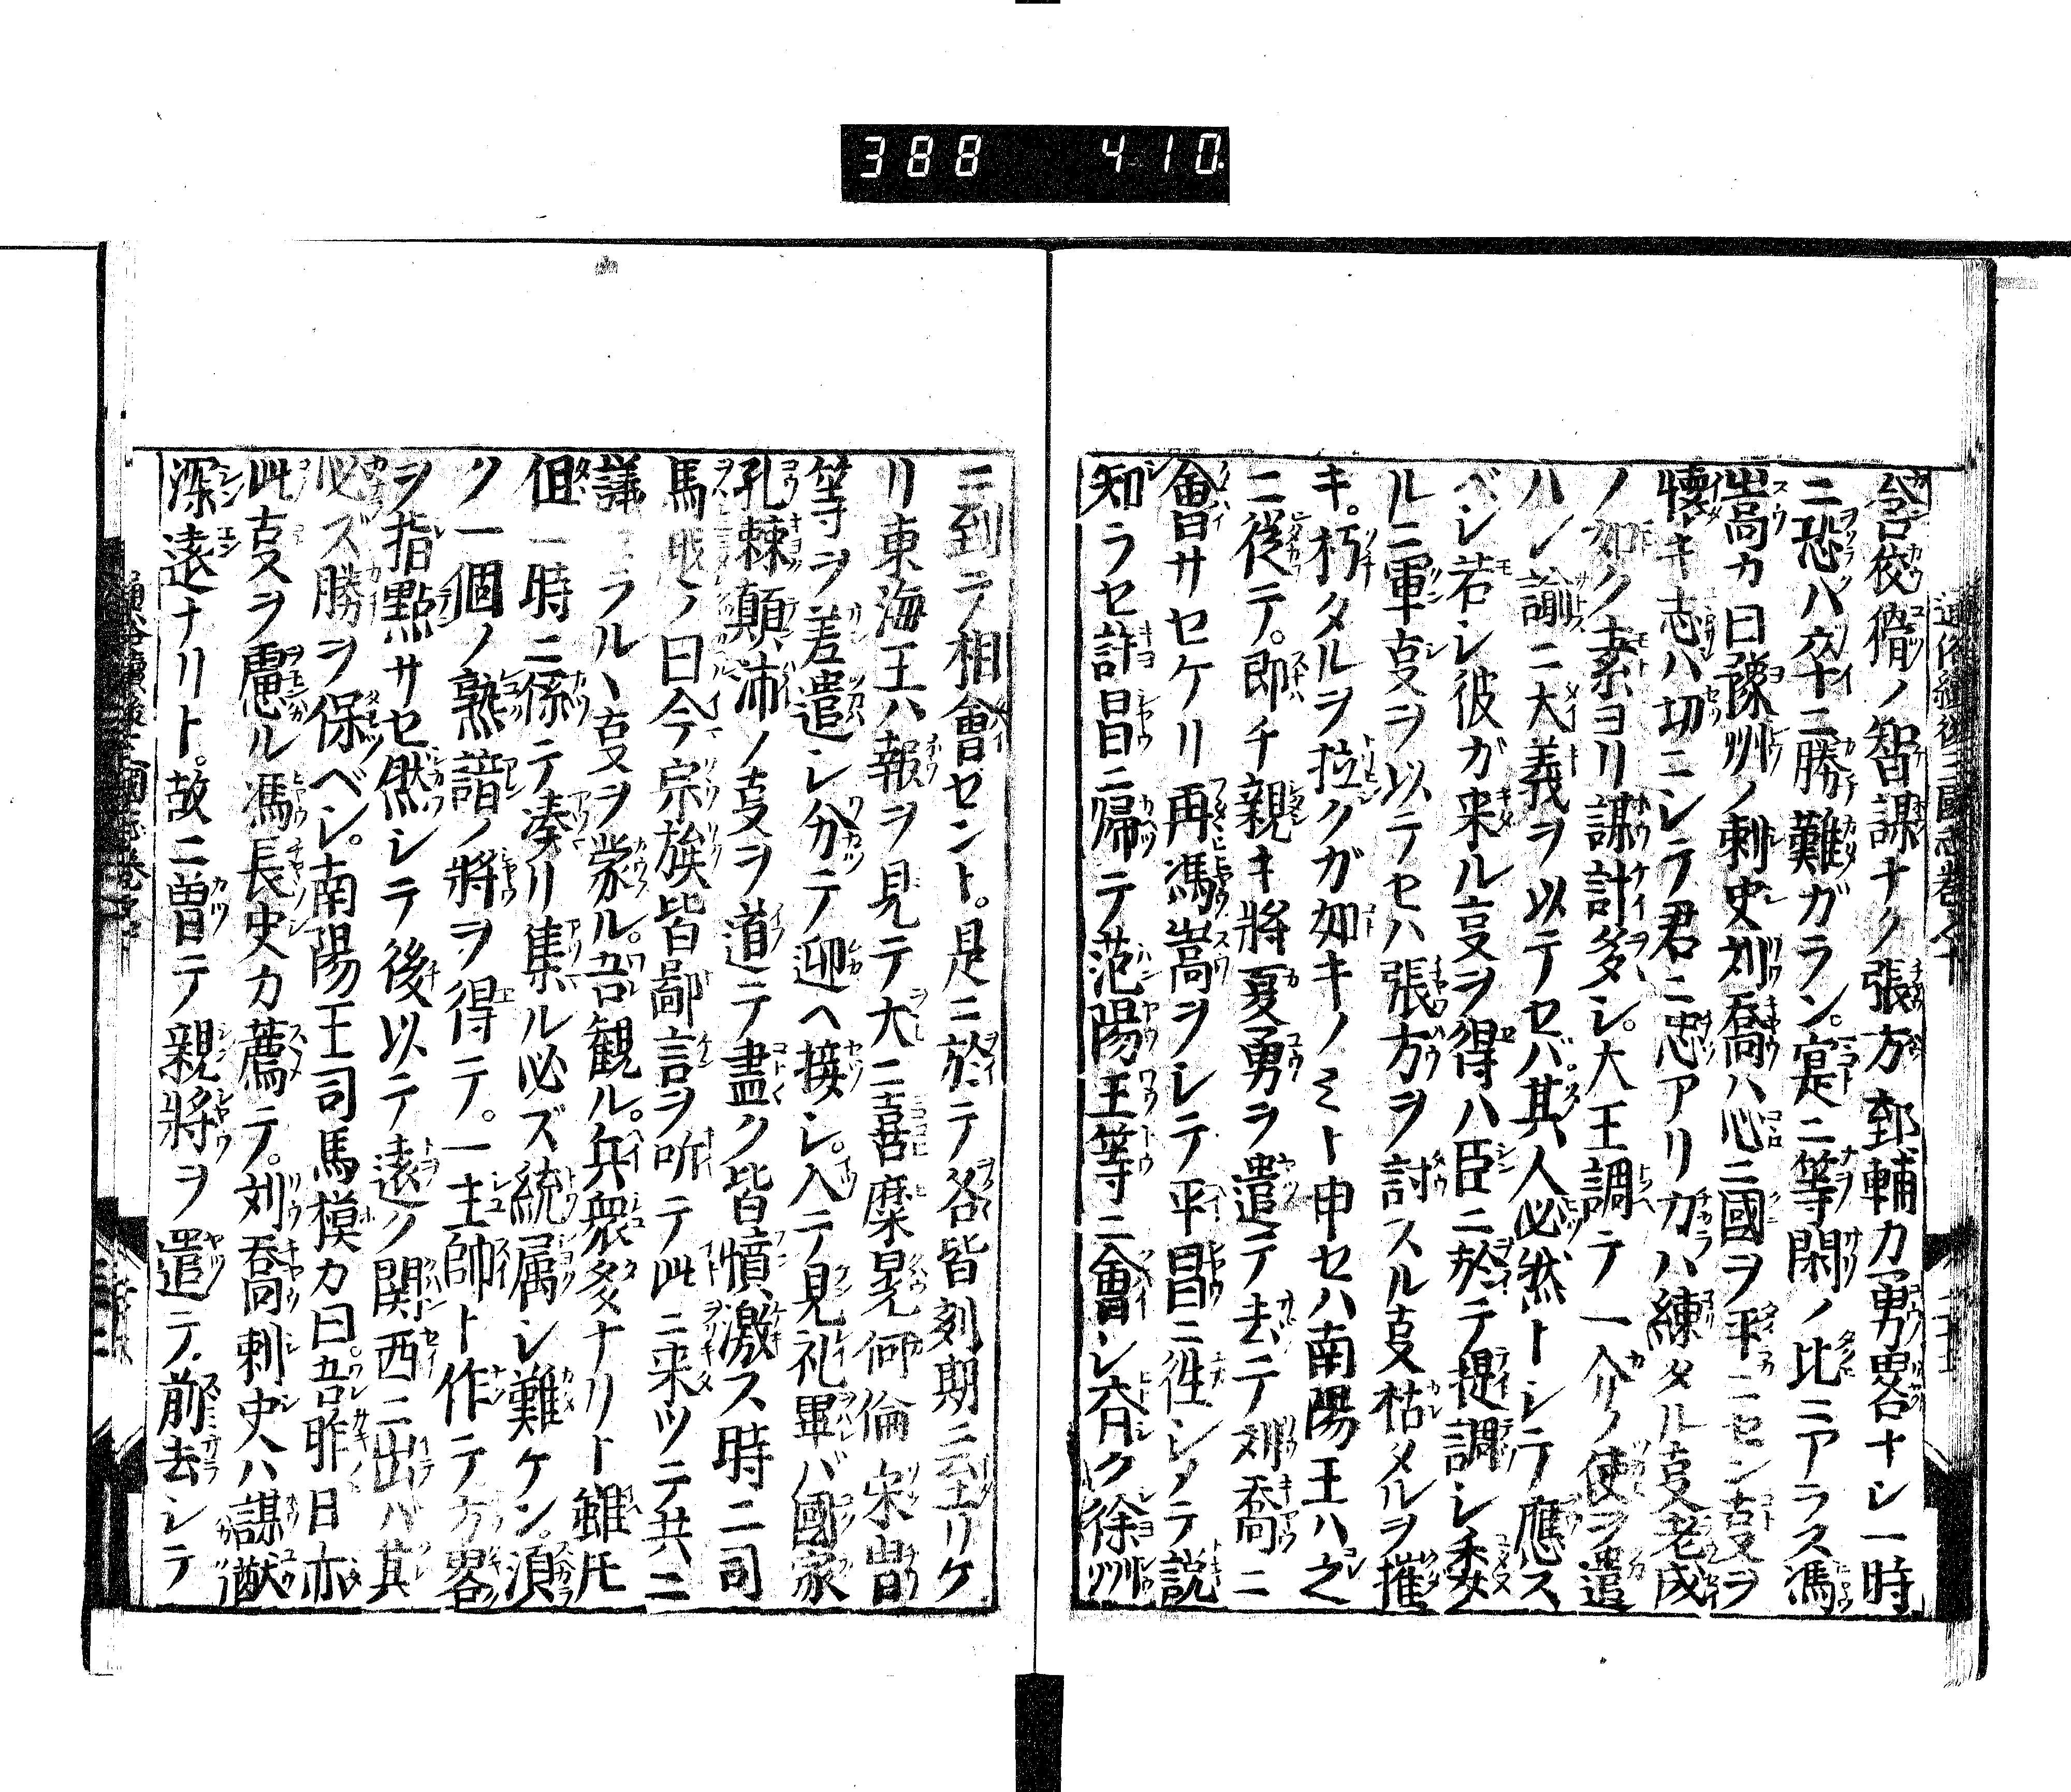 388 410
通俗續後三國志卷之十
含狡猾ノ智謀ナク張方郅輔カ勇畧ナシ一時
ニ恐ハ卒ニ勝難ガラン。寔ニ等閑ノ比ニアラス馮
嵩カ曰豫州ノ刺史刘喬ハ心ニ國ヲ平ニセン叓ヲ
懐キ志ハ切ニシテ君ニ忠アリカハ練タル叓老成
ノ如ク素ヨリ謀計多シ。大王調テ一介ノ使ヲ遣
ハシ諭ニ大義ヲ以テセバ。其人必然トシテ應ス
ベシ若シ彼ガ来ル叓ヲ得ハ臣ニ於テ提調シ委
ルニ軍叓ヲ以テセハ張方ヲ討スル叓枯タルヲ摧
キ。朽タルヲ拉クガ如キノミト申セハ南陽王ハ之
ニ從テ。即チ親キ將夏勇ヲ遣テ去テ刘喬ニ
會サセケリ再馮嵩ヲシテ平昌ニ徃シメテ説
知ラセ許昌ニ帰テ范陽王等ニ會シ斉ク徐州
ニ到テ相會セント。是ニ於テ各皆刻期ニ至リケ
リ東海王ハ報ヲ見テ大ニ喜糜晃何倫宋胄
等ヲ差遣シ分テ迎ヘ接シ。入テ見礼畢バ國家
孔棘顛沛ノ叓ヲ道テ盡ク皆憤激ス時ニ司
馬ノ曰今宗族皆鄙言ヲ听テ此ニ来ツテ共ニ
議ラル、叓ヲ蒙ル。吾観ル。兵衆多ナリト雖圧
但一時ニ係テ湊リ集ル必ズ統属シ難ケン。須
ク一個ノ熟諳ノ將ヲ得テ。一主帥ト作テ方畧
ヲ指點サセ然シテ後以テ遠ク関西ニ出バ其
必ズ勝ヲ保ベシ。南陽王司馬模カ曰。吾昨日亦
此叓ヲ慮ル馮長史カ薦テ。刘喬刺史ハ謀猷
深遠ナリト。故ニ曽テ親將ヲ遣テ。前去シテ